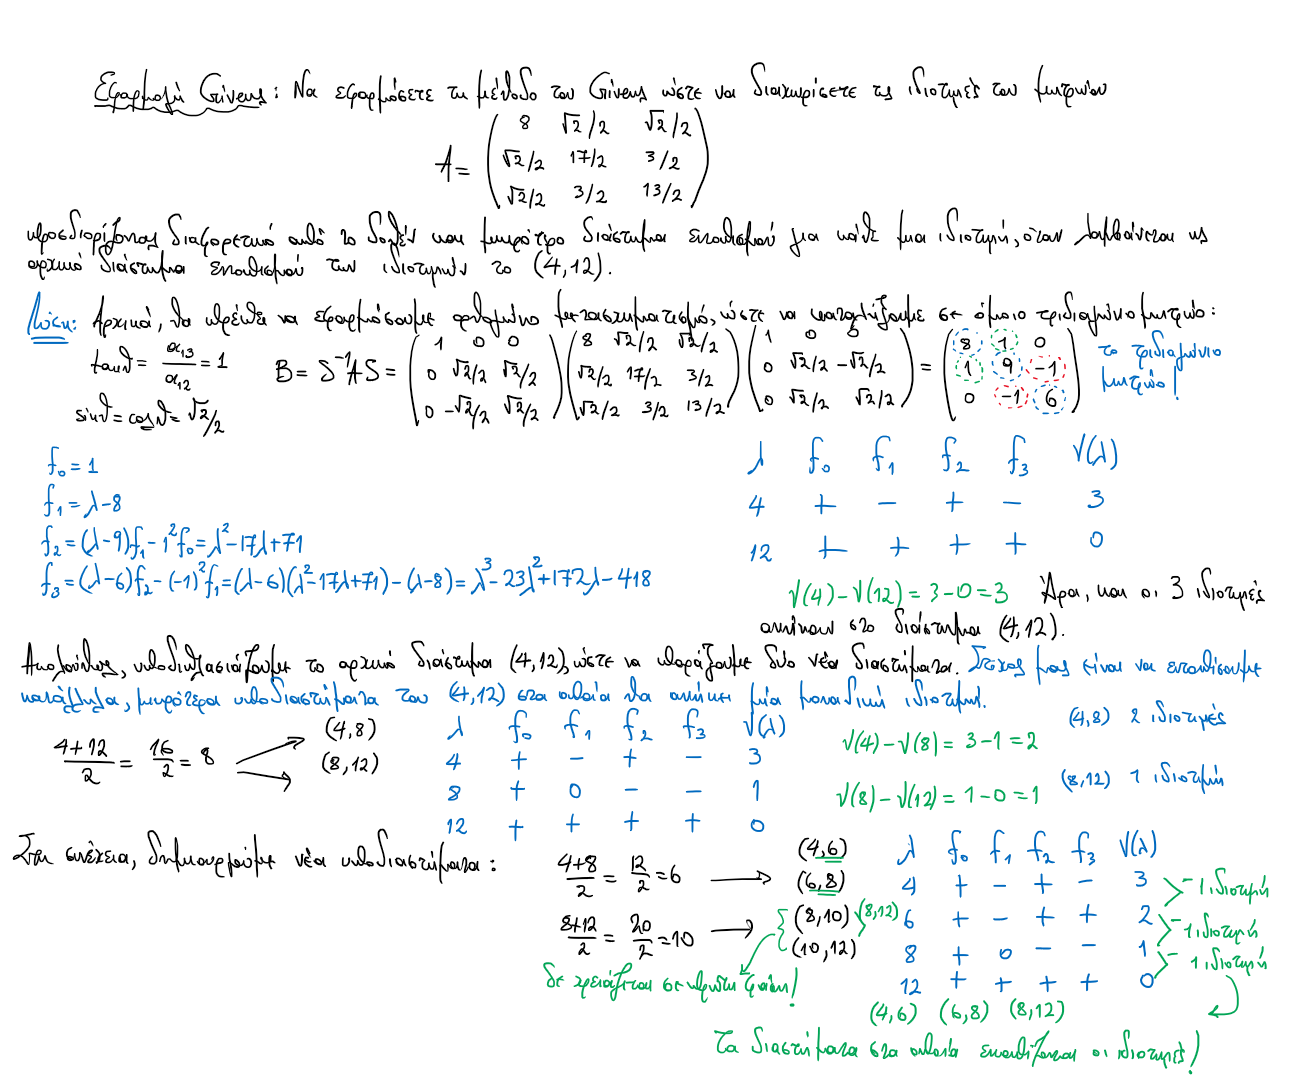 Εφαρμογή Givens: Να εφαρμόσετε τη μέθοδο του Givens ώστε να διαχωρίσετε τις ιδιοτιμές του μητρώου
A = ( 8 √2/2 √2/2
√2/2 17/2 3/2
√2/2 3/2 13/2 )
προσδιορίζοντας διαφορετικό από το δοθέν και μικρότερο διάστημα εντοπισμού για κάθε μια ιδιοτιμή, όταν λαμβάνεται ως
αρχικό διάστημα εντοπισμού των ιδιοτιμών το (4,12).
Λύση: Αρχικά, θα πρέπει να εφαρμόσουμε ορθογώνιο μετασχηματισμό, ώστε να καταλήξουμε σε όμοιο τριδιαγώνιο μητρώο:
tanθ = α13/α12 = 1
sinθ = cosθ = √2/2
B = S⁻¹AS = ( 1 0 0 ; 0 √2/2 √2/2 ; 0 -√2/2 √2/2 ) ( 8 √2/2 √2/2 ; √2/2 17/2 3/2 ; √2/2 3/2 13/2 ) ( 1 0 0 ; 0 √2/2 -√2/2 ; 0 √2/2 √2/2 ) = ( 8 1 0 ; 1 9 -1 ; 0 -1 6 )
το τριδιαγώνιο
μητρώο!
f₀ = 1
f₁ = λ-8
f₂ = (λ-9)f₁ - 1²f₀ = λ²-17λ+71
f₃ = (λ-6)f₂ - (-1)²f₁ = (λ-6)(λ²-17λ+71) - (λ-8) = λ³-23λ²+172λ-418
λ f₀ f₁ f₂ f₃ V(λ)
4 + - + - 3
12 + + + + 0
V(4) - V(12) = 3-0 = 3 Άρα, και οι 3 ιδιοτιμές
ανήκουν στο διάστημα (4,12).
Ακολούθως, υποδιπλασιάζουμε το αρχικό διάστημα (4,12), ώστε να παράξουμε δύο νέα διαστήματα. Στόχος μας είναι να εντοπίσουμε
κατάλληλα, μικρότερα υποδιαστήματα του (4,12) στα οποία θα ανήκει μία μοναδική ιδιοτιμή.
4+12/2 = 16/2 = 8
(4,8)
(8,12)
λ f₀ f₁ f₂ f₃ V(λ)
4 + - + - 3
8 + 0 - - 1
12 + + + + 0
V(4) - V(8) = 3-1 = 2
(4,8) 2 ιδιοτιμές
V(8) - V(12) = 1-0 = 1
(8,12) 1 ιδιοτιμή
Στη συνέχεια, δημιουργούμε νέα υποδιαστήματα:
4+8/2 = 12/2 = 6
(4,6)
(6,8)
8+12/2 = 20/2 = 10
(8,10)
(10,12)
(8,12)
δε χρειάζεται σε πρώτη φάση!
λ f₀ f₁ f₂ f₃ V(λ)
4 + - + - 3
6 + - + + 2
8 + 0 - - 1
12 + + + + 0
- 1 ιδιοτιμή
- 1 ιδιοτιμή
- 1 ιδιοτιμή
(4,6) (6,8) (8,12)
Τα διαστήματα στα οποία εντοπίζονται οι ιδιοτιμές!